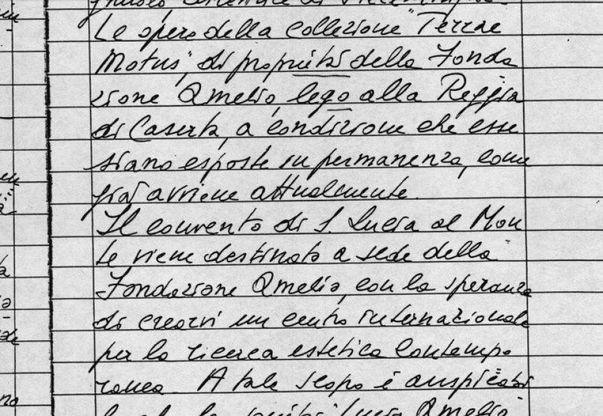 Le opere della collezione "Terrae
Motus", di proprietà della Fonda
zione Amelio, lego alla Reggia
di Caserta, a condizione che esse
siano esposte in permanenza, come
già avviene attualmente.
Il convento di S. Lucia al Mon
te viene destinato a sede della
Fondazione Amelio, con la speranza
di crearvi un centro internazionale
per la ricerca estetica contempo
ranea. A tale scopo è auspicabi
Lucia Amelio